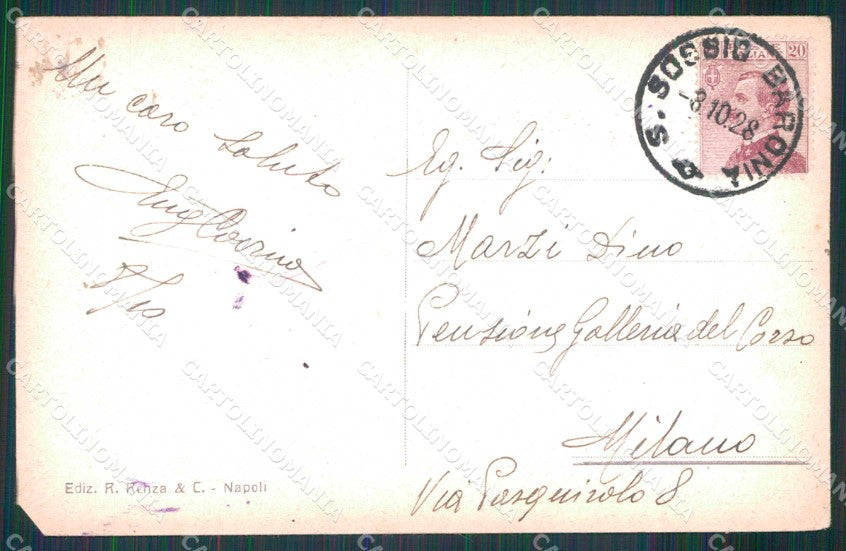 caro saluto
8/10
Eg. Sig:
Marzi Dino
Pensione Galleria del Corso
Milano
Via Pasquirolo 8
S. SOSSIO BARONIA
-8.10.28
20
Ediz. R. Renza & C. - Napoli
CARTOLINOMANIA